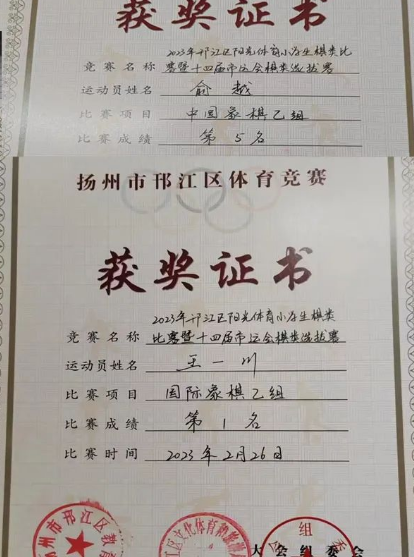 获奖证书
2023年邗江区阳光体育小学生棋类比
竞赛名称 赛暨十四届市运会棋类选拔赛
运动员姓名 俞越
比赛项目 中国象棋乙组
比赛成绩 第5名
扬州市邗江区体育竞赛
获奖证书
2023年邗江区阳光体育小学生棋类
竞赛名称 比赛暨十四届市运会棋类选拔赛
运动员姓名 王一川
比赛项目 国际象棋乙组
比赛成绩 第1名
比赛时间 2023年2月26日
扬州市邗江区教育
江区文化体育和旅游
大会组委会
组委